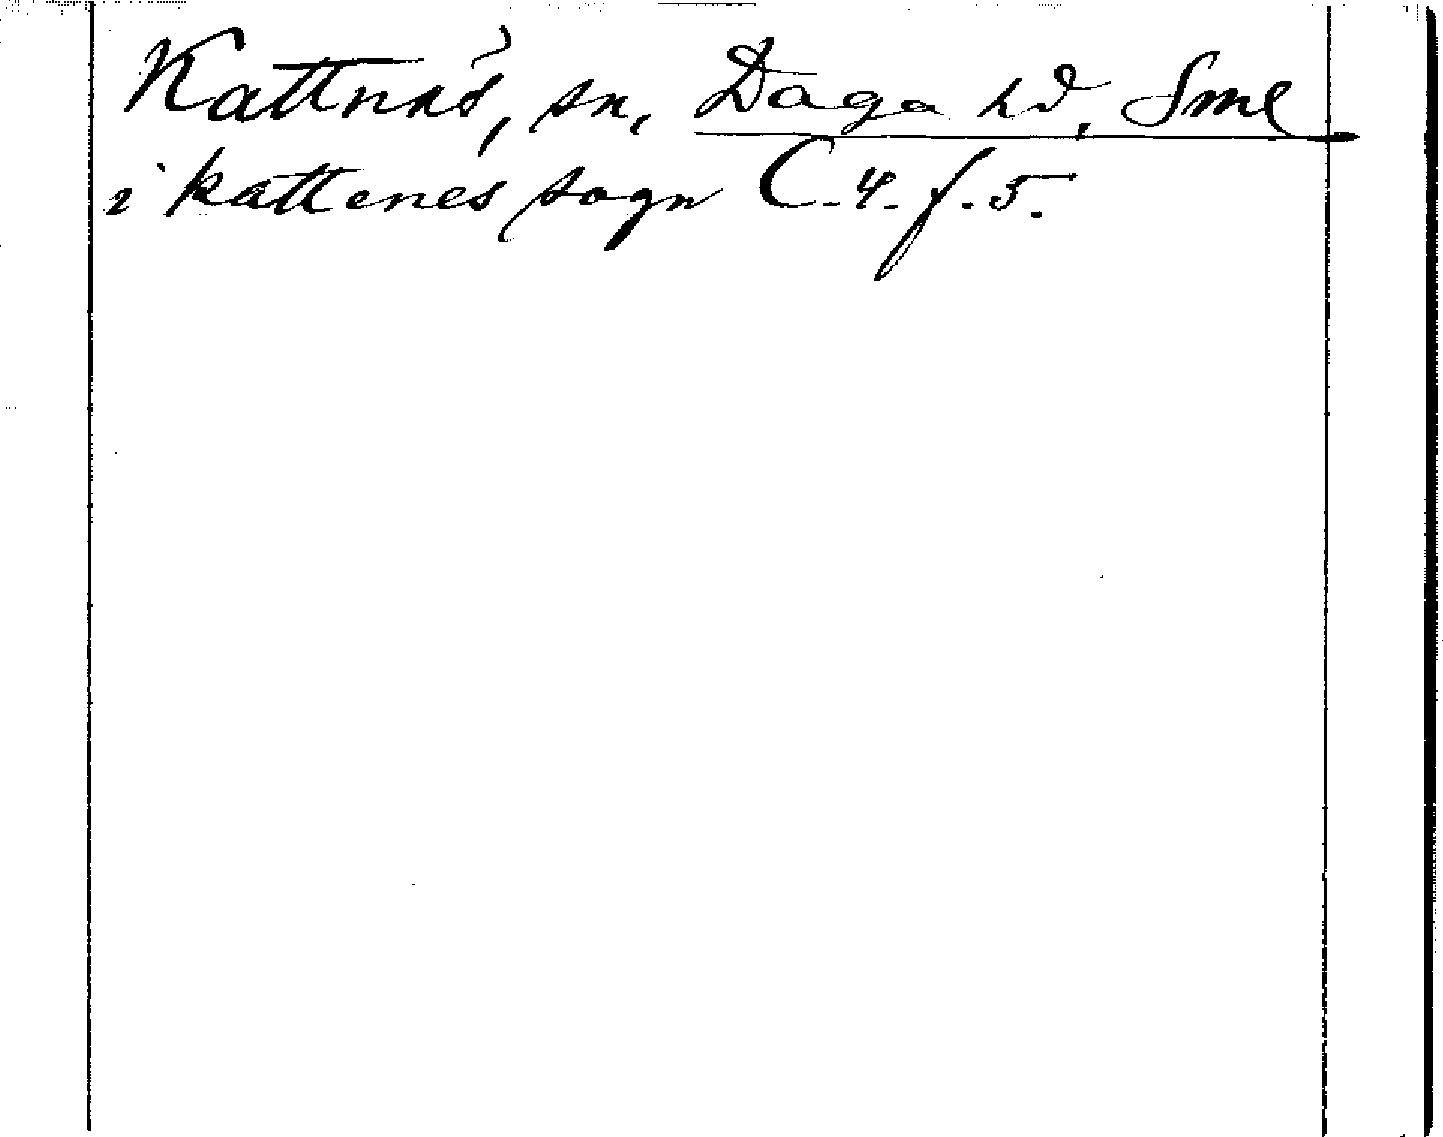 Kattnäs, sn, Daga hd, Sml
i kattenes sogn C. 4. f. 5.